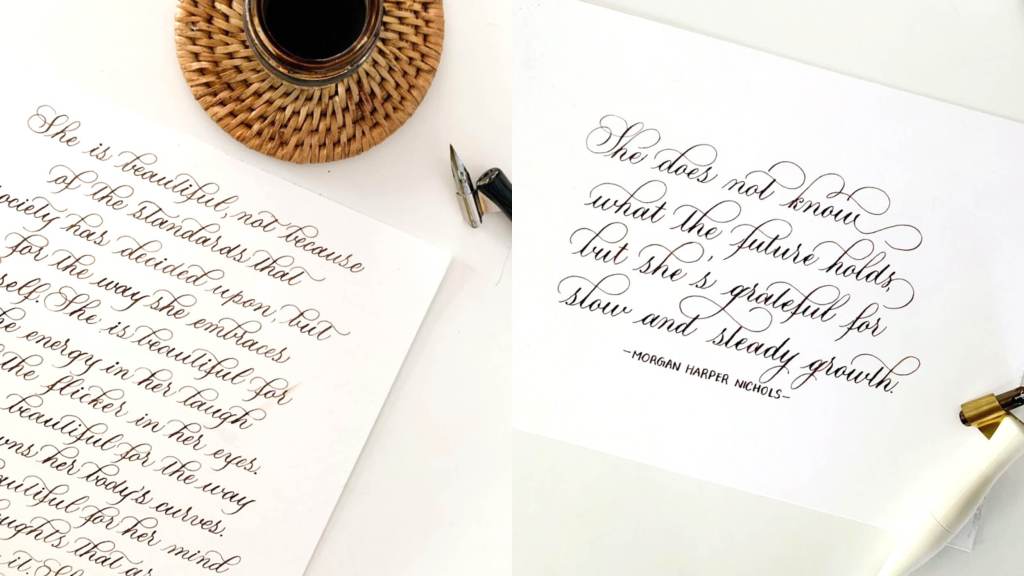 She is beautiful, not because
of the standards that
society has decided upon, but
for the way she embraces
She is beautiful for
energy in her laugh
the flicker in her eyes.
beautiful for the way
her body's curves.
for her mind
that
it.
She does not know
what the future holds,
but she's grateful for
slow and steady growth.
-MORGAN HARPER NICHOLS-